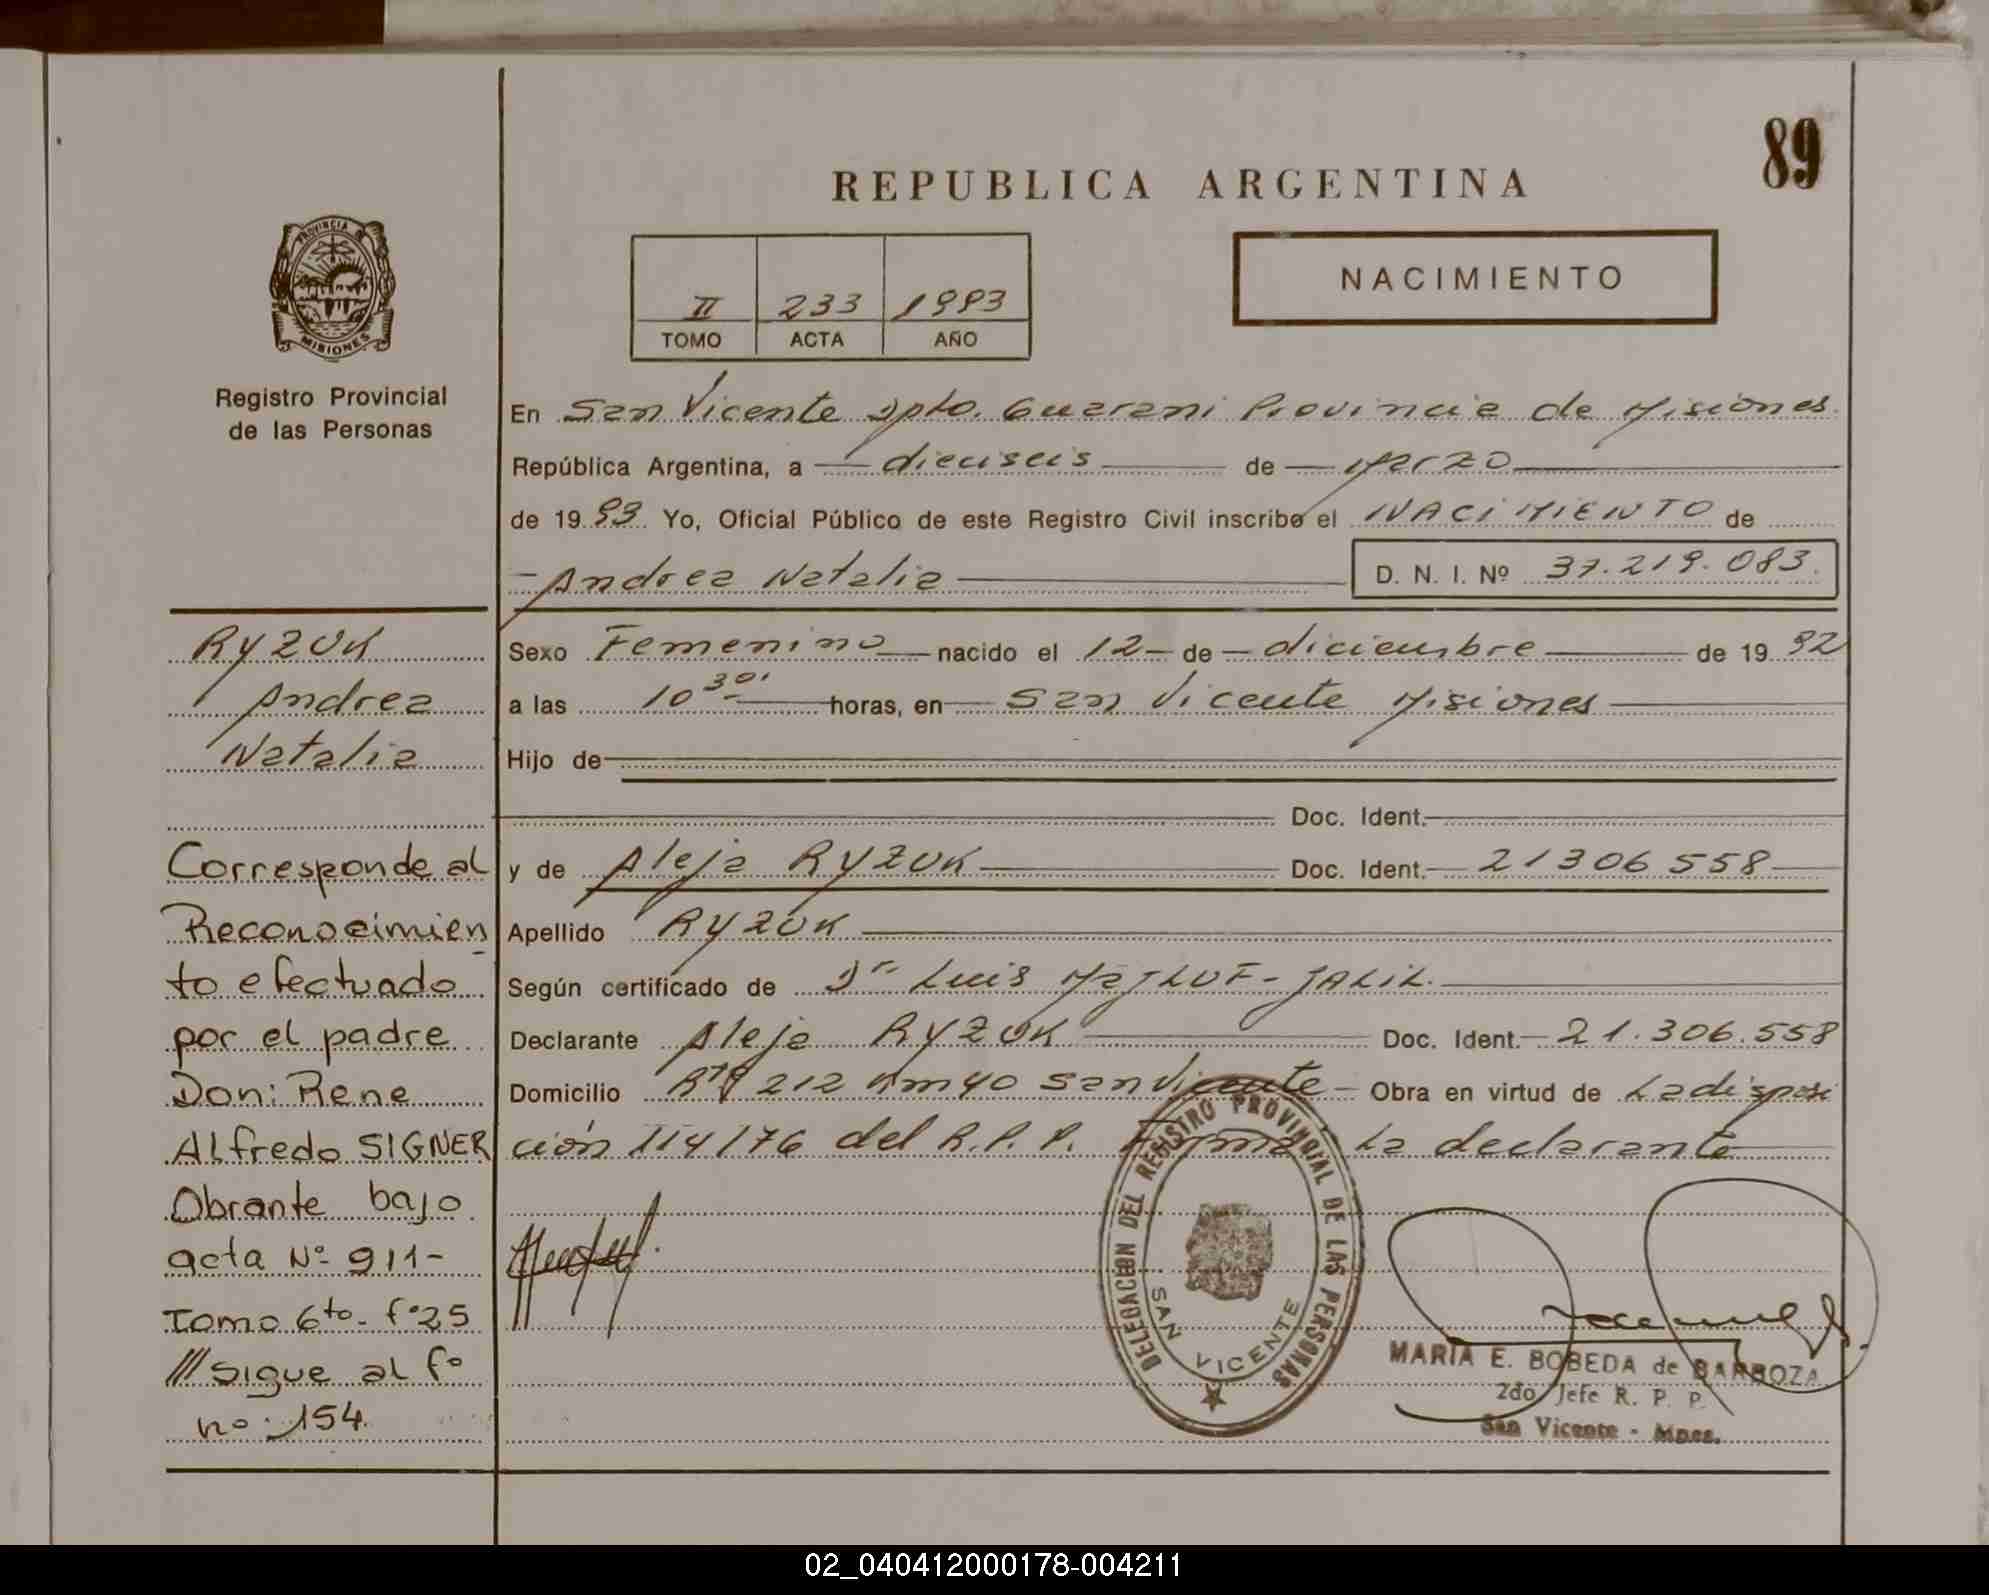 89
REPUBLICA ARGENTINA
PROVINCIA DE
MISIONES
Registro Provincial
de las Personas
NACIMIENTO
II 233 1993
TOMO ACTA AÑO
En San Vicente Dpto. Guarani Provincia de Misiones
República Argentina, a dieciseis de Marzo
de 1993 Yo, Oficial Público de este Registro Civil inscribo el NACIMIENTO de
Andrea Natalia D. N. I. Nº 37.219.083.
Sexo Femenino nacido el 12 de diciembre de 1992
a las 10 30' horas, en San Vicente Misiones
Hijo de
Doc. Ident.
y de Aleja RYZUK Doc. Ident. 21306558
Apellido RYZUK
Según certificado de Dr Luis MAJLUF-JALIL.
Declarante Aleja RYZUK Doc. Ident. 21.306.558
Domicilio Rta 212 Km 40 San Vicente Obra en virtud de La disposi
ción 114/76 del R.P.P. Firma La declarante
RYZUK
Andrea
Natalia
Corresponde al
Reconocimien
to efectuado
por el padre
Don: Rene
Alfredo SIGNER
Obrante bajo
acta Nº 911-
Tomo 6to- fº25
///sigue al fº
nº: 154.
DELEGACION DEL REGISTRO PROVINCIAL DE LAS PERSONAS
SAN VICENTE
MARIA E. BOBEDA de BARBOZA
2do Jefe R. P. P.
San Vicente - Mnes.
02_040412000178-004211